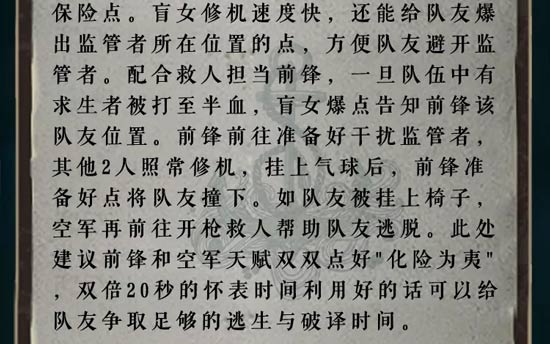 保险点。盲女修机速度快，还能给队友爆
出监管者所在位置的点，方便队友避开监
管者。配合救人担当前锋，一旦队伍中有
求生者被打至半血，盲女爆点告知前锋该
队友位置。前锋前往准备好干扰监管者，
其他2人照常修机，挂上气球后，前锋准
备好点将队友撞下。如队友被挂上椅子，
空军再前往开枪救人帮助队友逃脱。此处
建议前锋和空军天赋双双点好"化险为夷"
，双倍20秒的怀表时间利用好的话可以给
队友争取足够的逃生与破译时间。